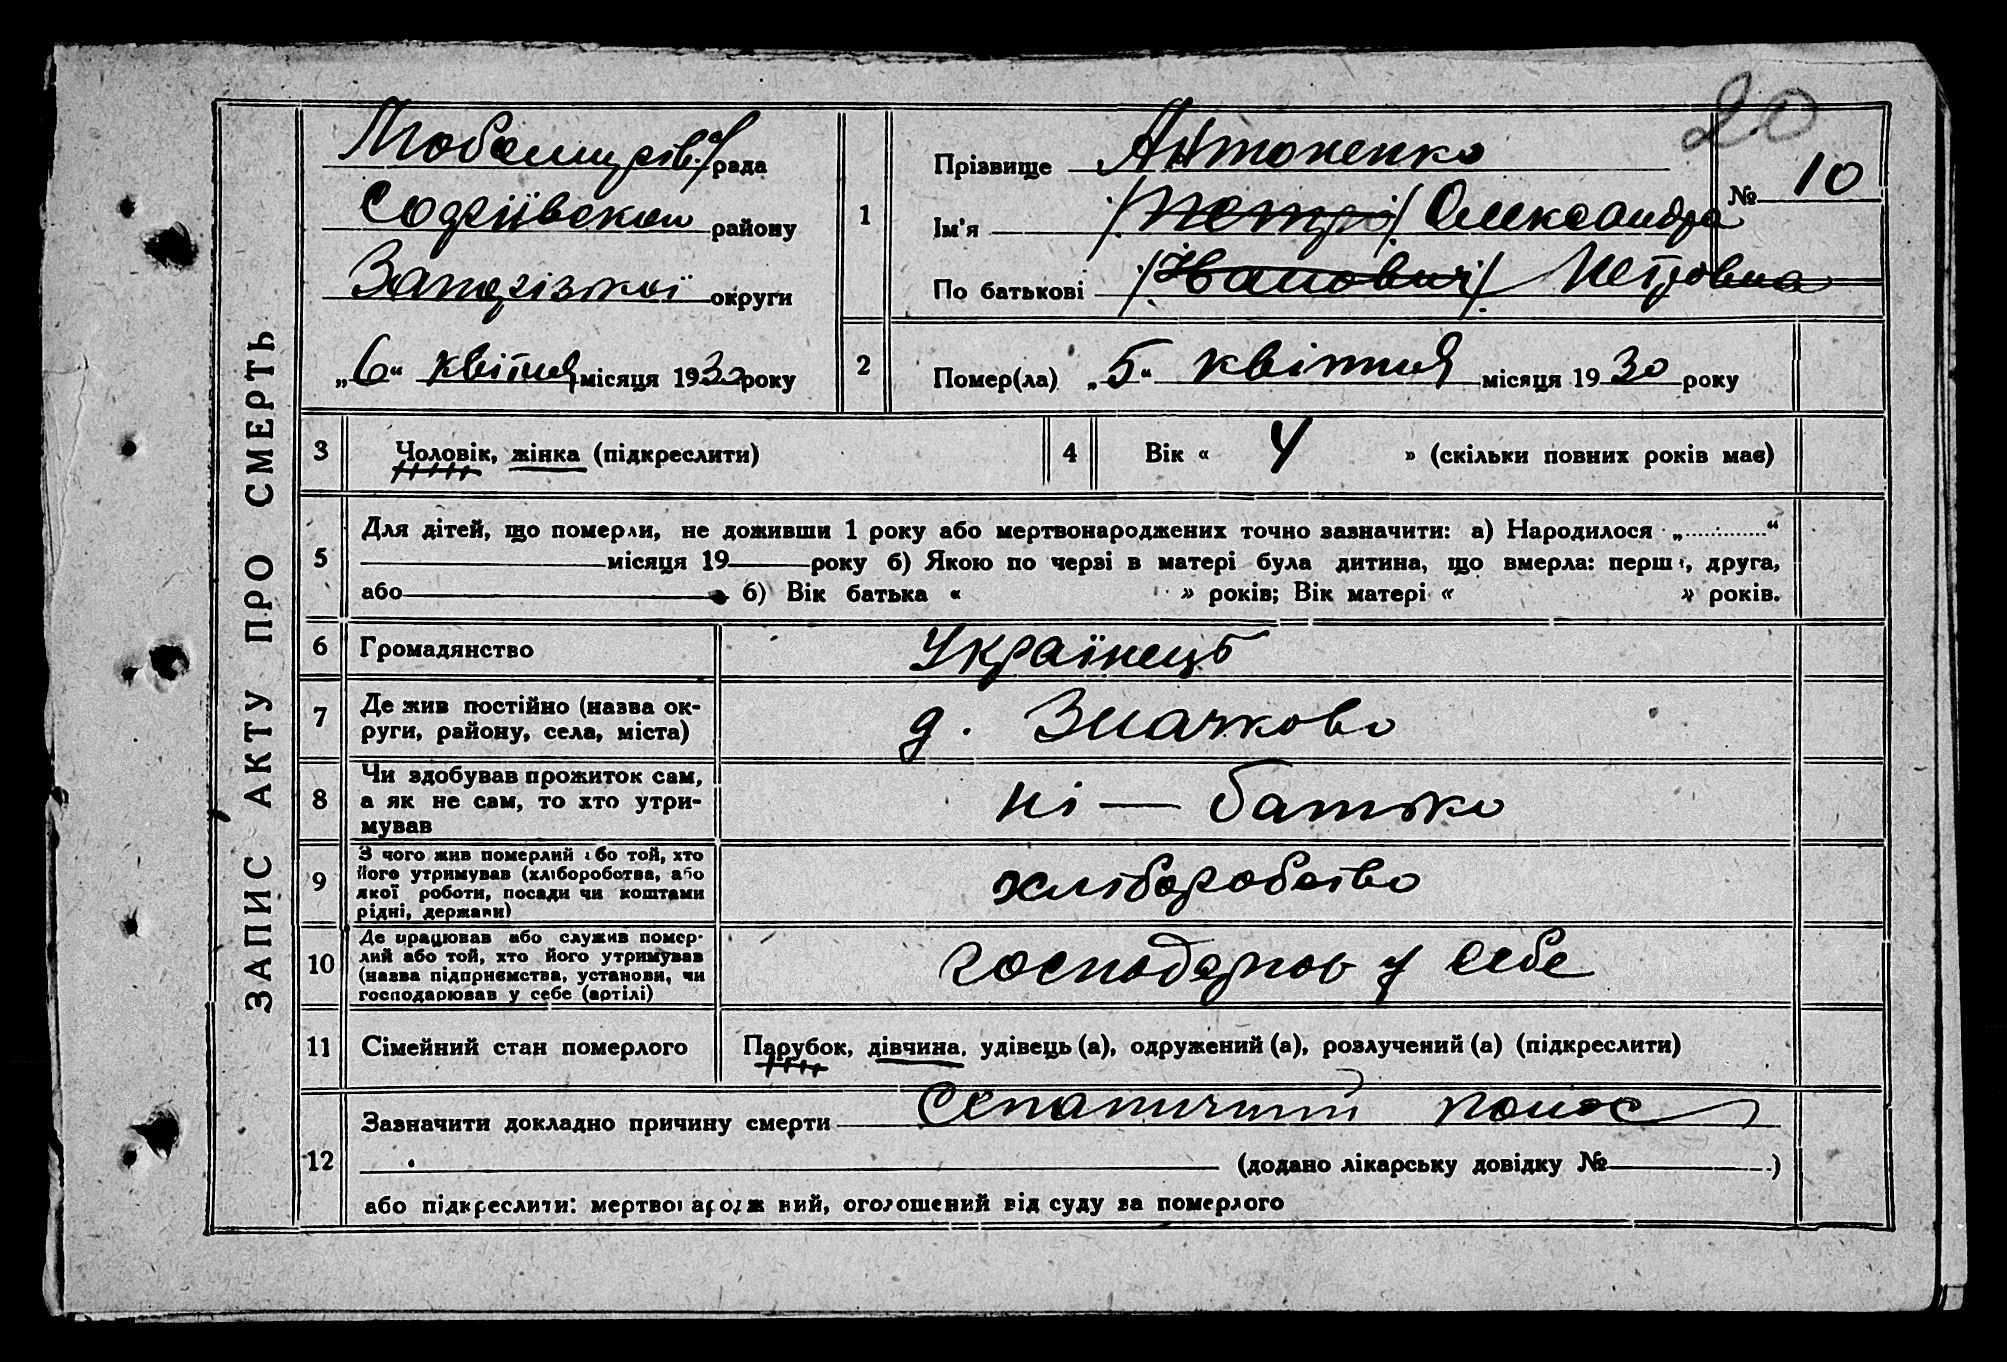 ЗАПИС АКТУ ПРО СМЕРТЬ
20
рада
району
Запорізької округи
„6“ квітня місяця 1930 року
1
Прізвище Антоненко
№ 10
Ім'я /Петро/ Олександра
По батькові /Іванович/ Петровна
2
Помер(ла) „5“ квітня місяця 1930 року
3 Чоловік, жінка (підкреслити)
4 Вік « 4 » (скільки повних років має)
5 Для дітей, що померли, не доживши 1 року або мертвонароджених точно зазначити: а) Народилося „......“
місяця 19 року б) Якою по черзі в матері була дитина, що вмерла: перш, друга,
або б) Вік батька « » років; Вік матері « » років.
6 Громадянство Українець
7 Де жив постійно (назва ок-
руги, району, села, міста)
д. Значково
8 Чи здобував прожиток сам,
а як не сам, то хто утри-
мував
ні — батько
9 З чого жив померлий або той, хто
його утримував (хліборобства, або
якої роботи, посади чи коштами
рідні, держави)
хліборобство
10 Де працював або служив помер-
лий або той, хто його утримував
(назва підприємства, установи, чи
господарював у себе (артілі)
господарюв у себе
11 Сімейний стан померлого Парубок, дівчина, удівець (а), одружений (а), розлучений (а) (підкреслити)
12 Зазначити докладно причину смерти понос
(додано лікарську довідку № )
або підкреслити: мертвонароджений, оголошений від суду за померлого